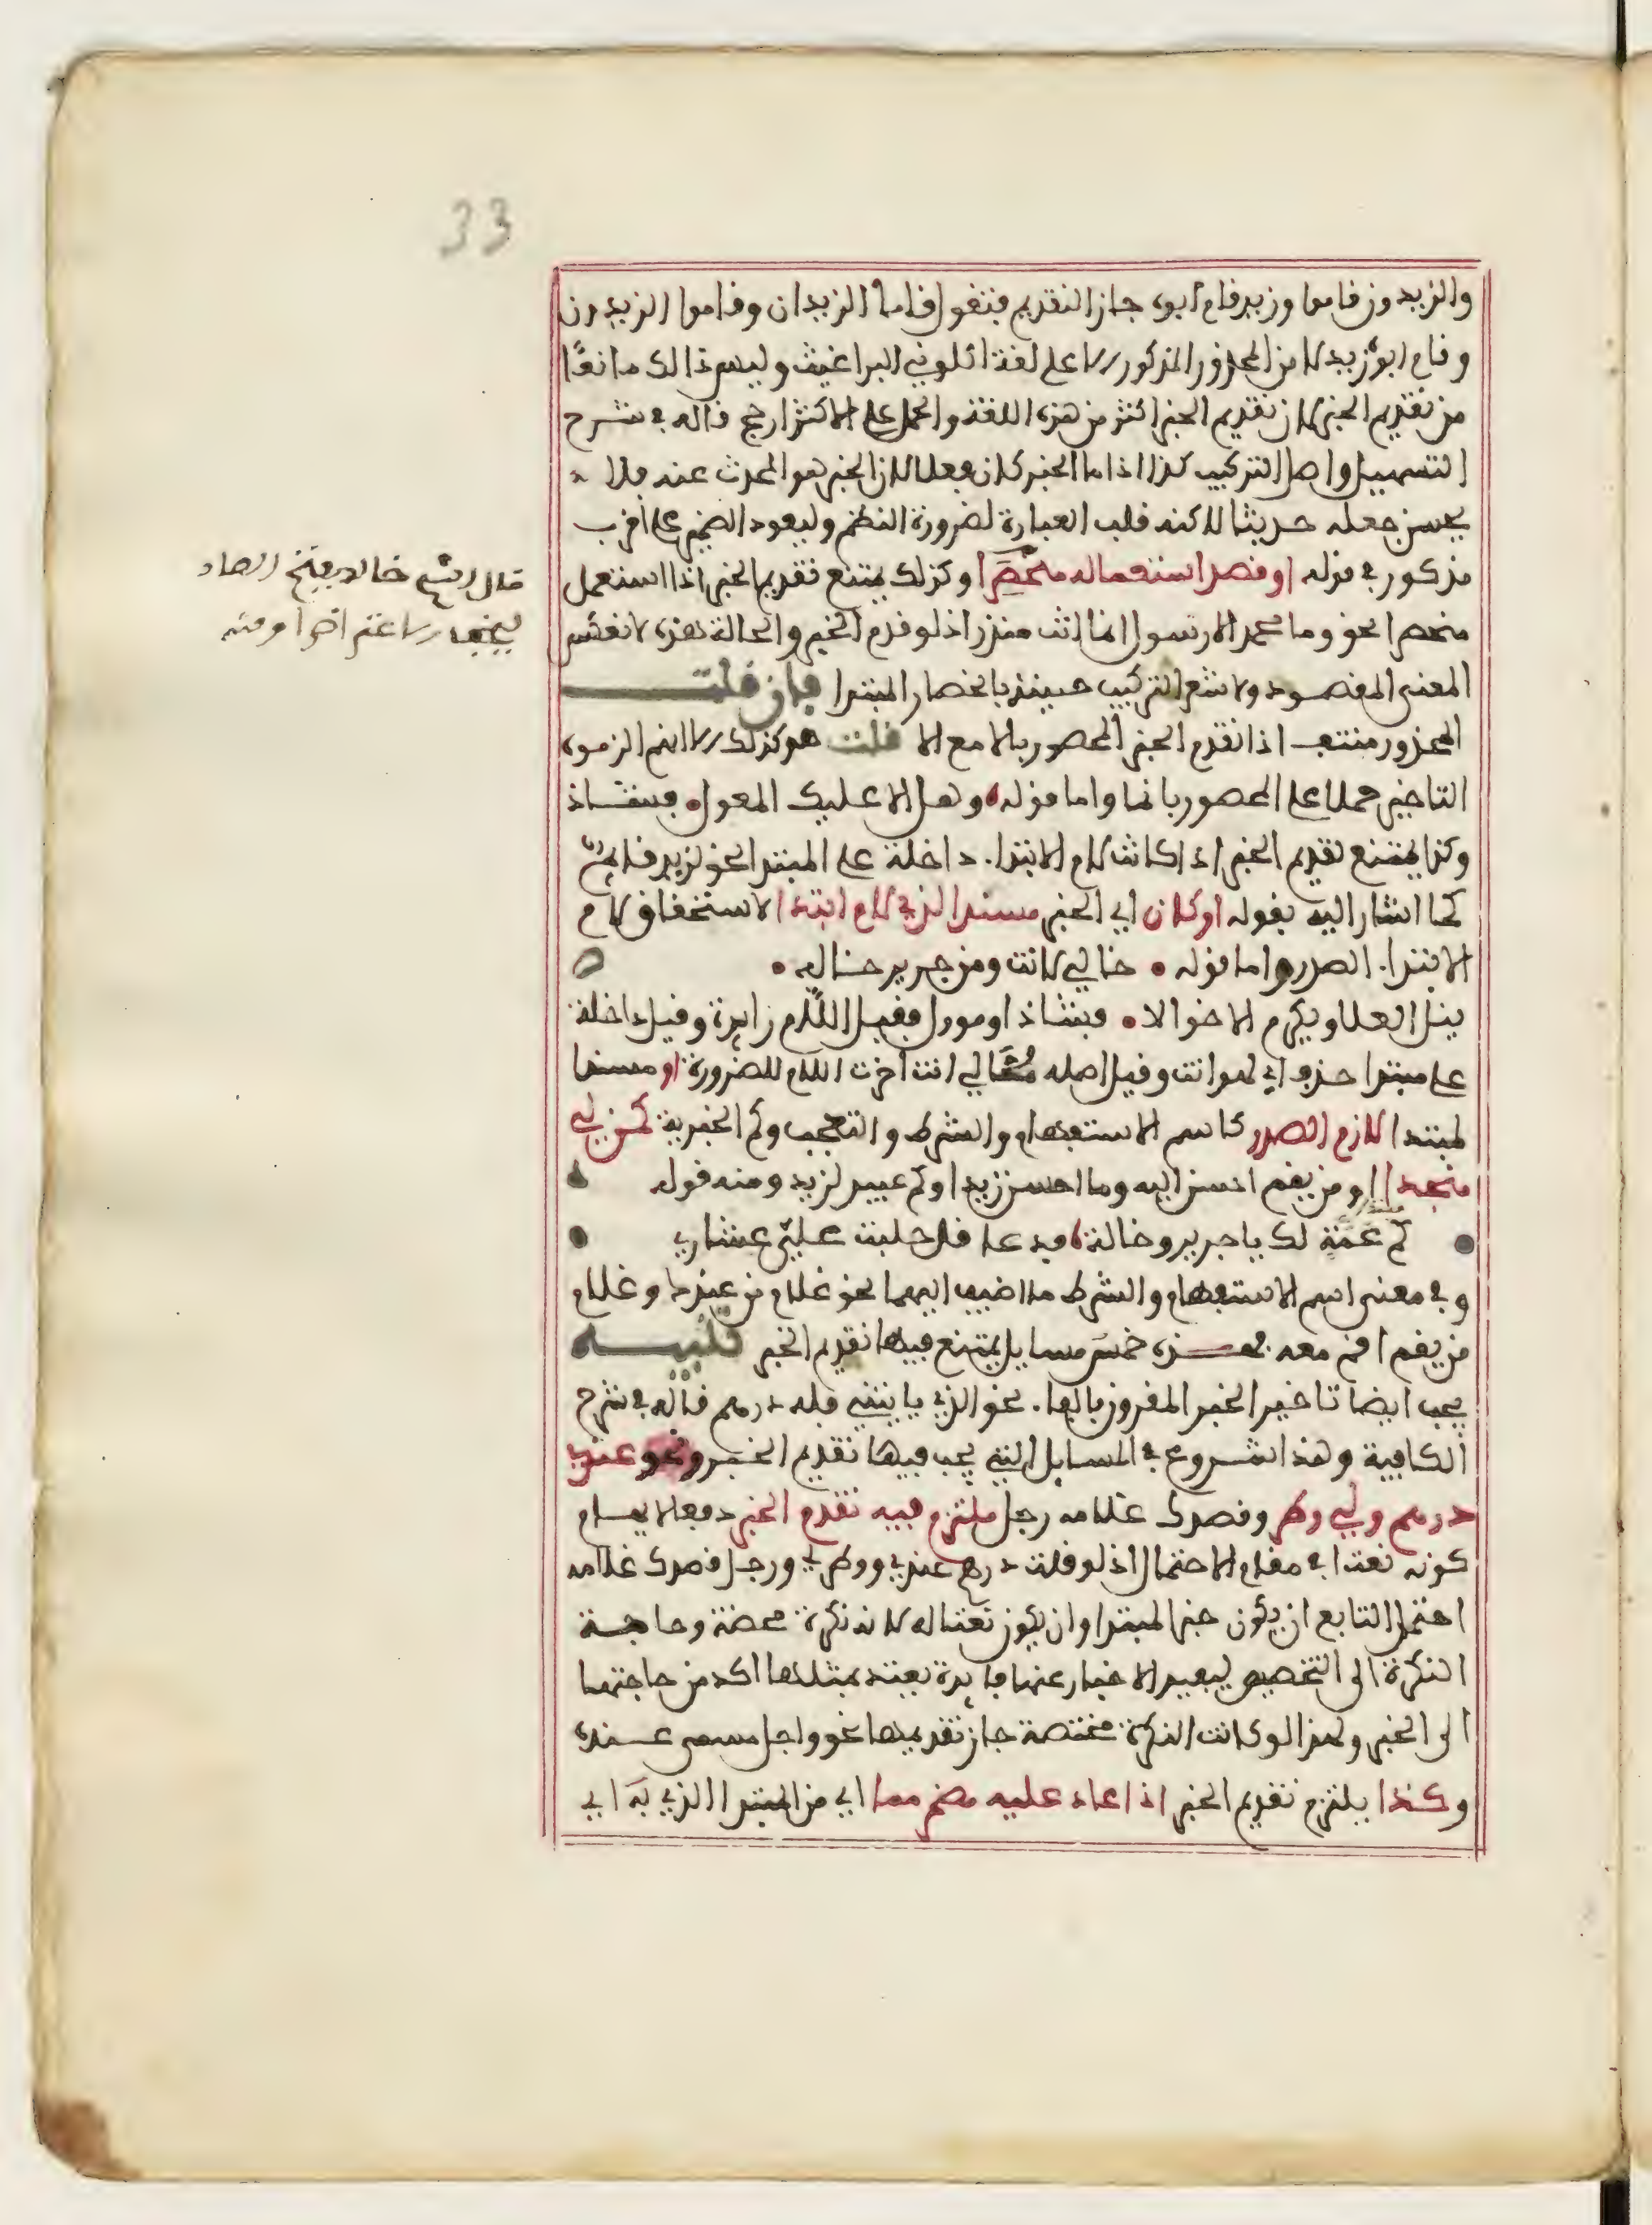 33
والزيدون قاموا وزيد قام ابوه جاز التقديم فتقول قاما الزيدان وقاموا الزيدون
وقام ابوه زيد للامن المحذور المذكور الا على لغة اكلوني البراغيث وليس ذالك مانعا
من تقديم الخبر لان تقديم الخبر اكثر من هذه اللغة والحمل على الاكثر ارجح قاله في شرح
التسهيل واصل التركيب كذا اذا ما الخبر كان فعلا لان الخبر هو المحدث عنه فلا
يحسن جعله حديثا لاكنه قلب العبارة لضرورة النظم وليعود الضمير على اقرب
مذكور في قوله او قصد استعماله منحصرا وكذلك يمتنع تقديم الخبر اذا استعمل
منحصرا نحو وما محمد الا رسول انما انت منذر اذ لو قدم الخبر والحالة هذه لانعكس
المعنى المقصود ولاشعر التركيب حينئذ بانحصار المبتدا فان قلت
المحذور منتف اذا تقدم الخبر المحصور بالا مع الا قلت هو كذلك الا انهم الزموه
التاخير حملا على المحصور بانما واما قوله وهل الا عليك المعول فشاذ
وكذا يمتنع تقديم الخبر اذا كانت لام الابتدا داخلة على المبتدا نحو لزيد قايم
كما اشار اليه بقوله او كان اي الخبر مسندا لذي لام ابتدا لاستحقاق لام
الابتدا الصدر واما قوله خالي لانت ومن جرير خاله
ينل العلا ويكرم الاخوالا فشاذ او موول فقيل اللام زايدة وقيل داخلة
على مبتدا حذف اي لهو انت وقيل اصله لخالي انت اخرت اللام للضرورة او مسندا
لمبتدا لازم الصدر كاسم الاستفهام والشرط والتعجب وكم الخبرية كمن لي
منجدا او من يقم احسن اليه وما احسن زيدا وكم عبيد لزيد ومنه قوله
كم عمة لك يا جرير وخالة فدعا قد حلبت علي عشاري
وفي معنى اسم الاستفهام والشرط ما اضيف اليهما نحو غلام من عندك وغلام
من يقم اقم معه فهذه خمس مسايل يمتنع فيها تقديم الخبر تنبيه
يجب ايضا تاخير الخبر المقرون بالفا نحو الذي ياتيني فله درهم قاله في شرح
الكافية وهذا شروع في المسايل التي يجب فيها تقديم الخبر ونحو عندي
درهم ولي وطر وقصدك غلامه رجل ملتزم فيه تقدم الخبر دفعا لايهام
كونه نعتا في مقام الاحتمال اذ لو قلت درهم عندي ووطر لي ورجل قصدك غلامه
احتمل التابع ان يكون خبرا لمبتدا وان يكون نعتا له لانه نكرة محضة وحاجة
النكرة الى التخصيص ليفيد الاخبار عنها فايدة يعتد بمثلها اكد من حاجتها
الى الخبر ولهذا لو كانت النكرة مختصة جاز تقديمها نحو واجل مسمى عنده
وكذا يلتزم تقديم الخبر اذا عاد عليه مضمر مما اي من المبتدا الذي به اي
قال الشيخ خالد بفتح الصاد